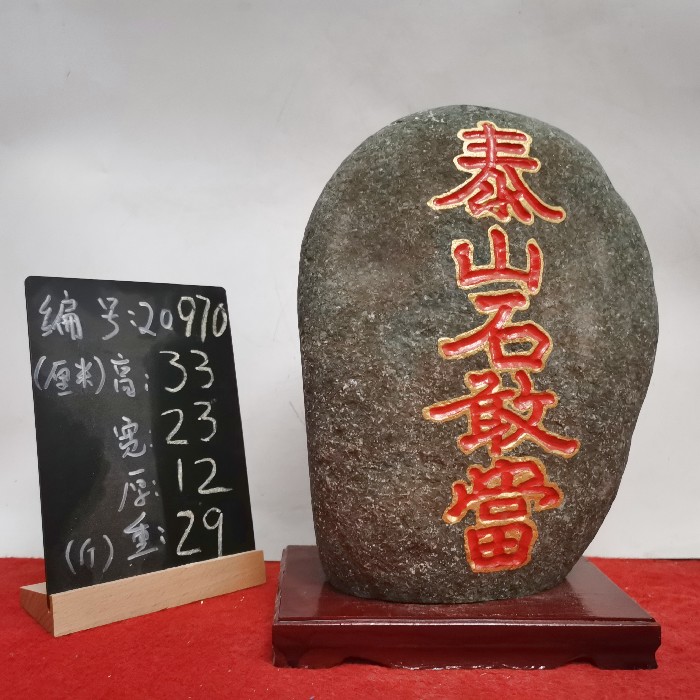 编号:20970
(厘米)高:33
宽:23
厚:12
(斤)重:29
泰山石敢當